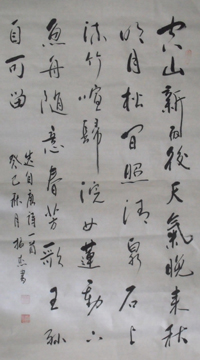 空山新雨後天氣晚來秋
明月松間照清泉石上
流竹喧歸浣女蓮動下
魚舟隨意春芳歇王孫
自可留
自唐詩一首
癸巳秋月書